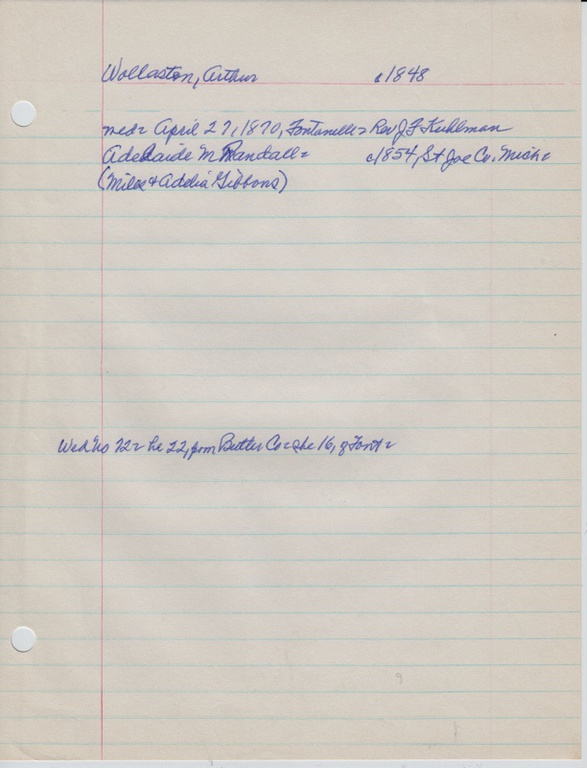 Wollaston, Arthur c1848
med= April 27, 1870, Fontanelle= Rev J F Kuhlman
Adelaide M Randall= c1854, St Joe Co. Mich=
(Miles & Adelia Gibbons)
Wed No 72= he 22, from Butler Co= she 16, of Font=